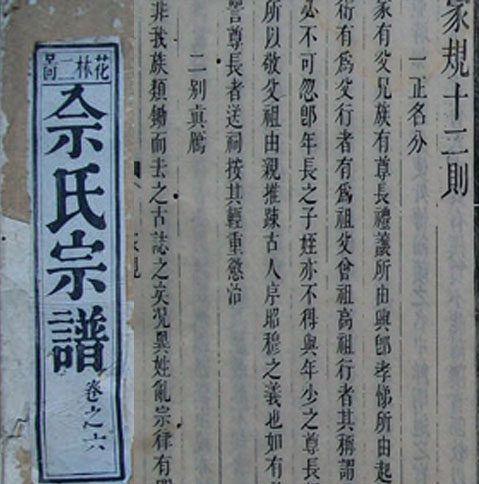 家規十二則
一正名分
家有父兄族有尊長禮讓所由興卽孝悌所由起
衍有爲父行者有爲祖父曾祖高祖行者其稱謂
必不可忽卽年長之子姪亦不得與年少之尊長
所以敬父祖由親推踈古人序昭穆之義也如有
詈尊長者送祠按其輕重懲治
二別真贋
非我族類鋤而去之古誌之矣况異姓亂宗律有
花林二啚
佘氏宗譜
卷之六